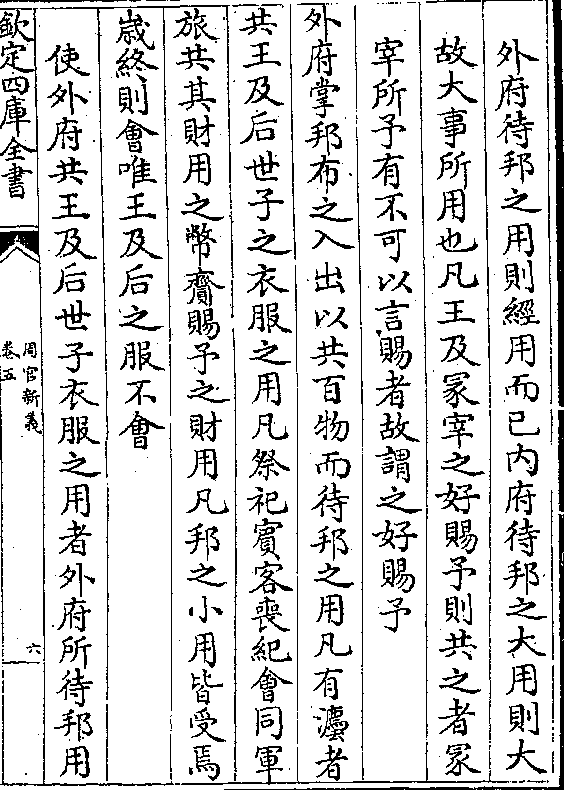 外府待邦之用則經用而已內府待邦之大用則大
故大事所用也凡王及冢宰之好賜予則共之者冢
宰所予有不可以言賜者故謂之好賜予
外府掌邦布之入出以共百物而待邦之用凡有灋者
共王及后世子之衣服之用凡祭祀賓客喪紀會同軍
旅共其財用之幣齎賜予之財用凡邦之小用皆受焉
歲終則會唯王及后之服不會
使外府共王及后世子衣服之用者外府所待邦用
欽定四庫全書
周官新義
卷五
六